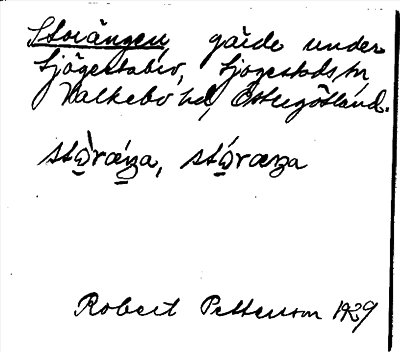 Storängen, gärde under
Sjögestabro, Sjögestads sn,
Valkebo hd, Östergötland.
stὼræŋa, stώræŋa
Robert Pettersson 1929